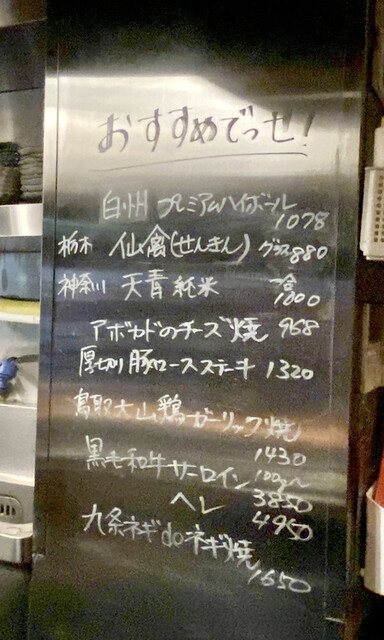 おすすめでっせ!
白州 プレミアムハイボール 1078
栃木 仙禽(せんきん) グラス880
神奈川 天青 純米 一合 1000
アボカドのチーズ焼 968
厚切り豚ロースステーキ 1320
鳥取大山鶏ガーリック焼 1430
黒毛和牛サーロイン 100g〜 3850
ヘレ 4950
九条ネギdeネギ焼 1650